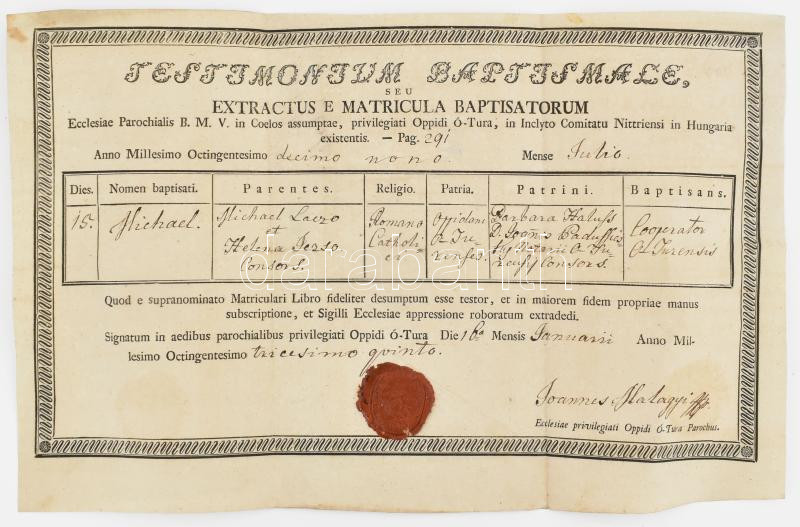 TESTIMONIUM BAPTISMALE,
SEU
EXTRACTUS E MATRICULA BAPTISATORUM
Ecclesiae Parochialis B. M. V. in Coelos assumptae, privilegiati Oppidi Ó-Tura, in Inclyto Comitatu Nittriensi in Hungaria
existentis. — Pag. 291
Anno Millesimo Octingentesimo decimo nono. Mense Julio.
Dies. Nomen baptisati. Parentes. Religio. Patria. Patrini. Baptisans.
15. Michael. Michael Laczo
et
Helena
Consors.
Romano
Catholi-
ci
Oppidani
O Tu-
renses.
Barbara
D. Joanis
O Tu-
Consors.
Cooperator
O Turensis
darabanth
Quod e supranominato Matriculari Libro fideliter desumptum esse testor, et in maiorem fidem propriae manus
subscriptione, et Sigilli Ecclesiae appressione roboratum extradedi.
Signatum in aedibus parochialibus privilegiati Oppidi Ó-Tura Die 16a Mensis Januarii Anno Mil-
lesimo Octingentesimo tricesimo quinto.
Joannes Malagyi
Ecclesiae privilegiati Oppidi Ó-Tura Parochus.